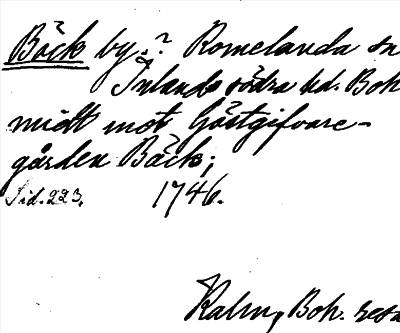 Bäck by.? Romelanda sn
Inlands södra hd. Boh
midt mot Gästgifvare-
gården Bäck;
Sid. 223. 1746.
Kalm, Boh. resa